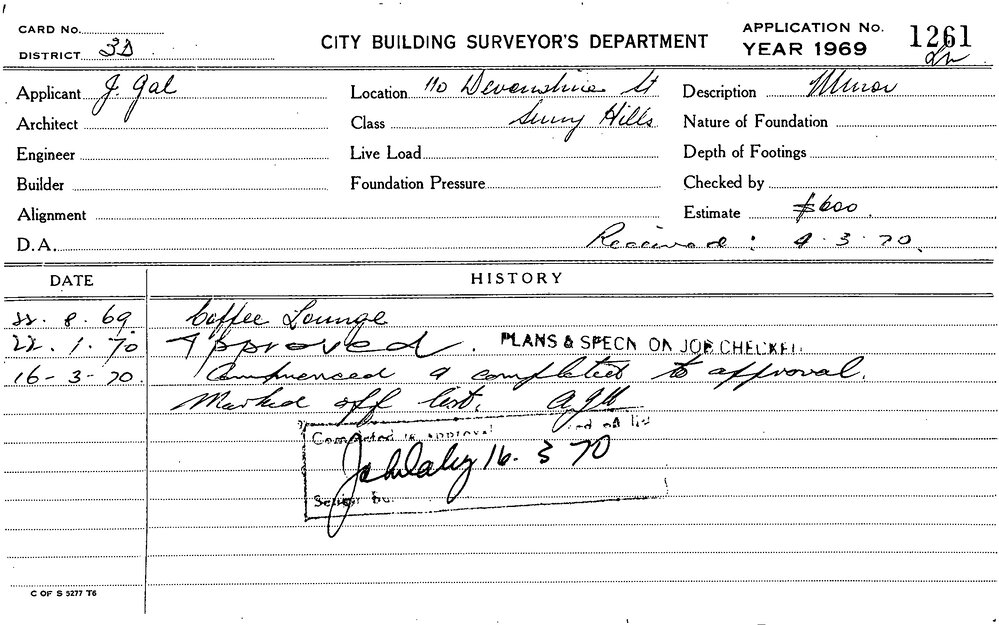 CARD No.
DISTRICT 3D
CITY BUILDING SURVEYOR'S DEPARTMENT
APPLICATION No. 1261
YEAR 1969
Applicant J. Gal
Location 110 Devonshire St
Description Minor
Architect
Class Surry Hills
Nature of Foundation
Engineer
Live Load
Depth of Footings
Builder
Foundation Pressure
Checked by
Alignment
Estimate $600.
D.A. Received: 9.3.70.
DATE HISTORY
22.8.69 Coffee Lounge
22.1.70 Approved. PLANS & SPECN ON JOB CHECKED
16-3-70. Commenced & completed to approval.
Marked off list.
Completed to approval
16.3 70
C OF S 5277 T6